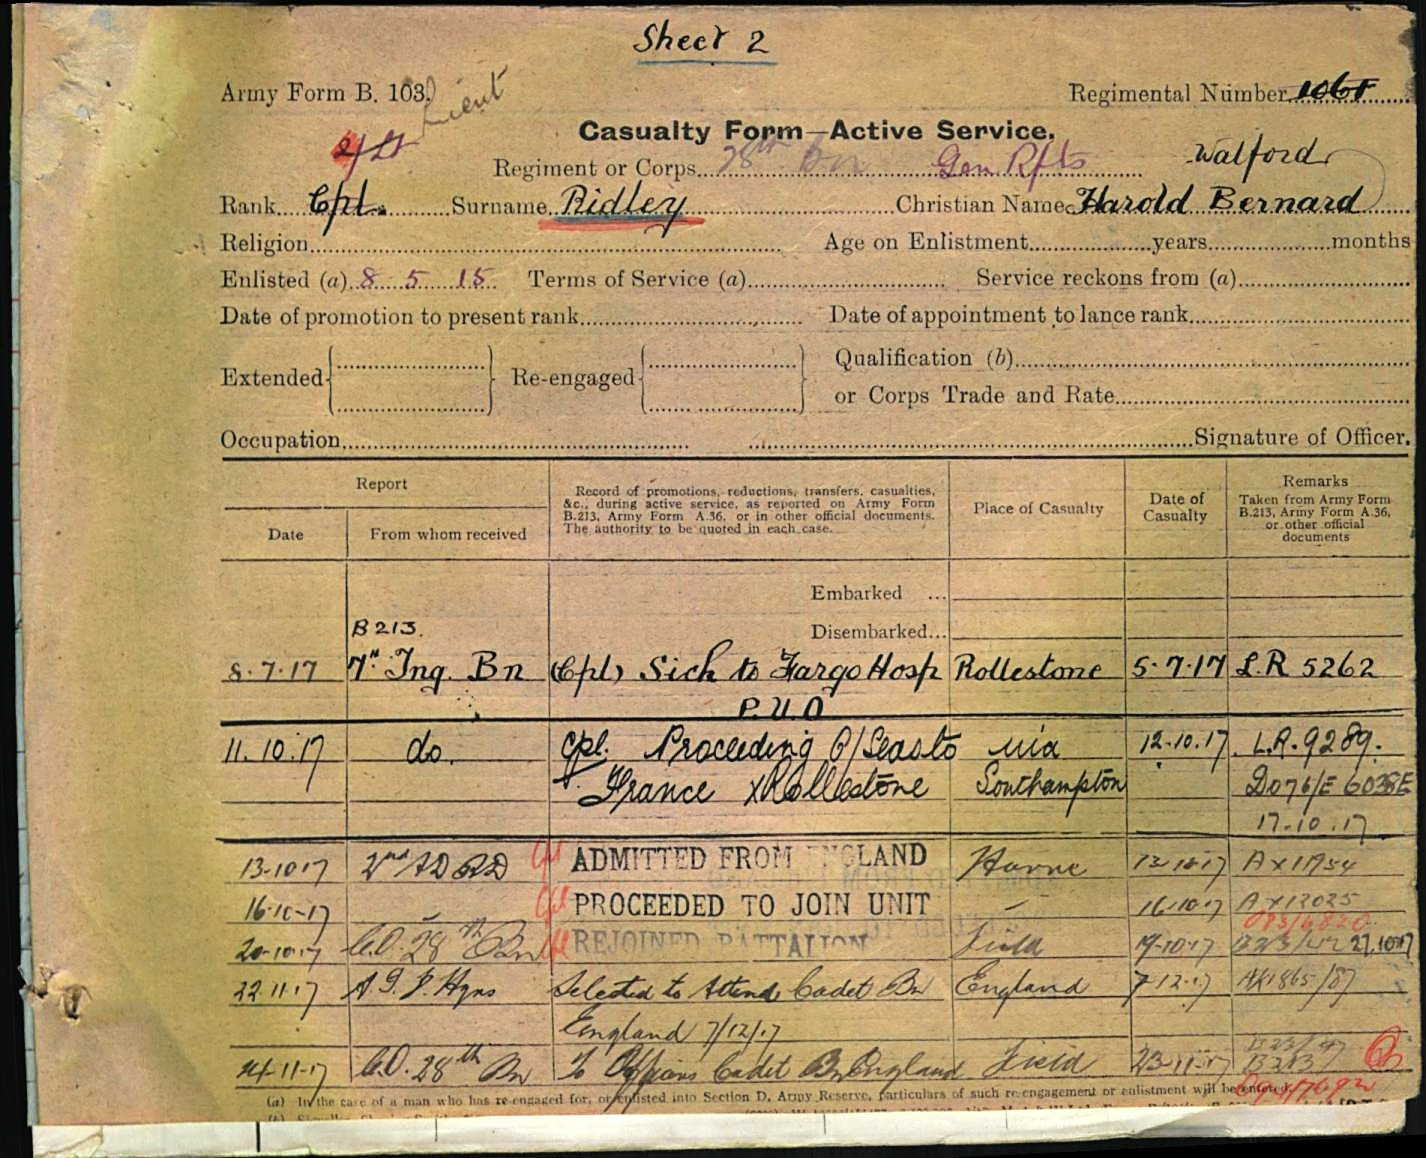 Sheet 2
Army Form B. 103. Lieut
Regimental Number 1061
2/Lt
Casualty Form—Active Service.
Regiment or Corps 28th Bn Gen Rfts Walford
Rank Cpl. Surname Ridley Christian Name Harold Bernard
Religion Age on Enlistment years months
Enlisted (a) 8 5 15 Terms of Service (a) Service reckons from (a)
Date of promotion to present rank Date of appointment to lance rank
Extended Re-engaged Qualification (b)
or Corps Trade and Rate
Occupation Signature of Officer.
Report
Date
From whom received
Record of promotions, reductions, transfers, casualties,
&c., during active service, as reported on Army Form
B.213, Army Form A.36, or in other official documents.
The authority to be quoted in each case.
Place of Casualty
Date of
Casualty
Remarks
Taken from Army Form
B.213, Army Form A.36,
or other official
documents
Embarked ...
B 213. Disembarked...
8.7.17 7th Tng. Bn (Cpl) Sick to Fargo Hosp Rollestone 5.7.17 L.R 5262
P.U.O
11.10.17 do. Cpl. Proceeding O/Seas to via 12.10.17 L.R. 9289.
France x Rollestone Southampton DO76/E 6038E
17.10.17
13.10.17 2nd ADBD Cpl ADMITTED FROM ENGLAND Havre 13.10.17
16.10.17 - Cpl PROCEEDED TO JOIN UNIT - 16.10.17
20.10.17 C.O. 28th Bn REJOINED BATTALION Field 19.10.17 27.10.17
22.11.17 Selected to Attend Cadet Bn England 7.12.17
England 7/12/17
24.11.17 C.O. 28th Bn To Officers Cadet Bn England Field 23.11.17 B213
(a) In the case of a man who has re-engaged for, or enlisted into Section D, Army Reserve, particulars of such re-engagement or enlistment will be entered.